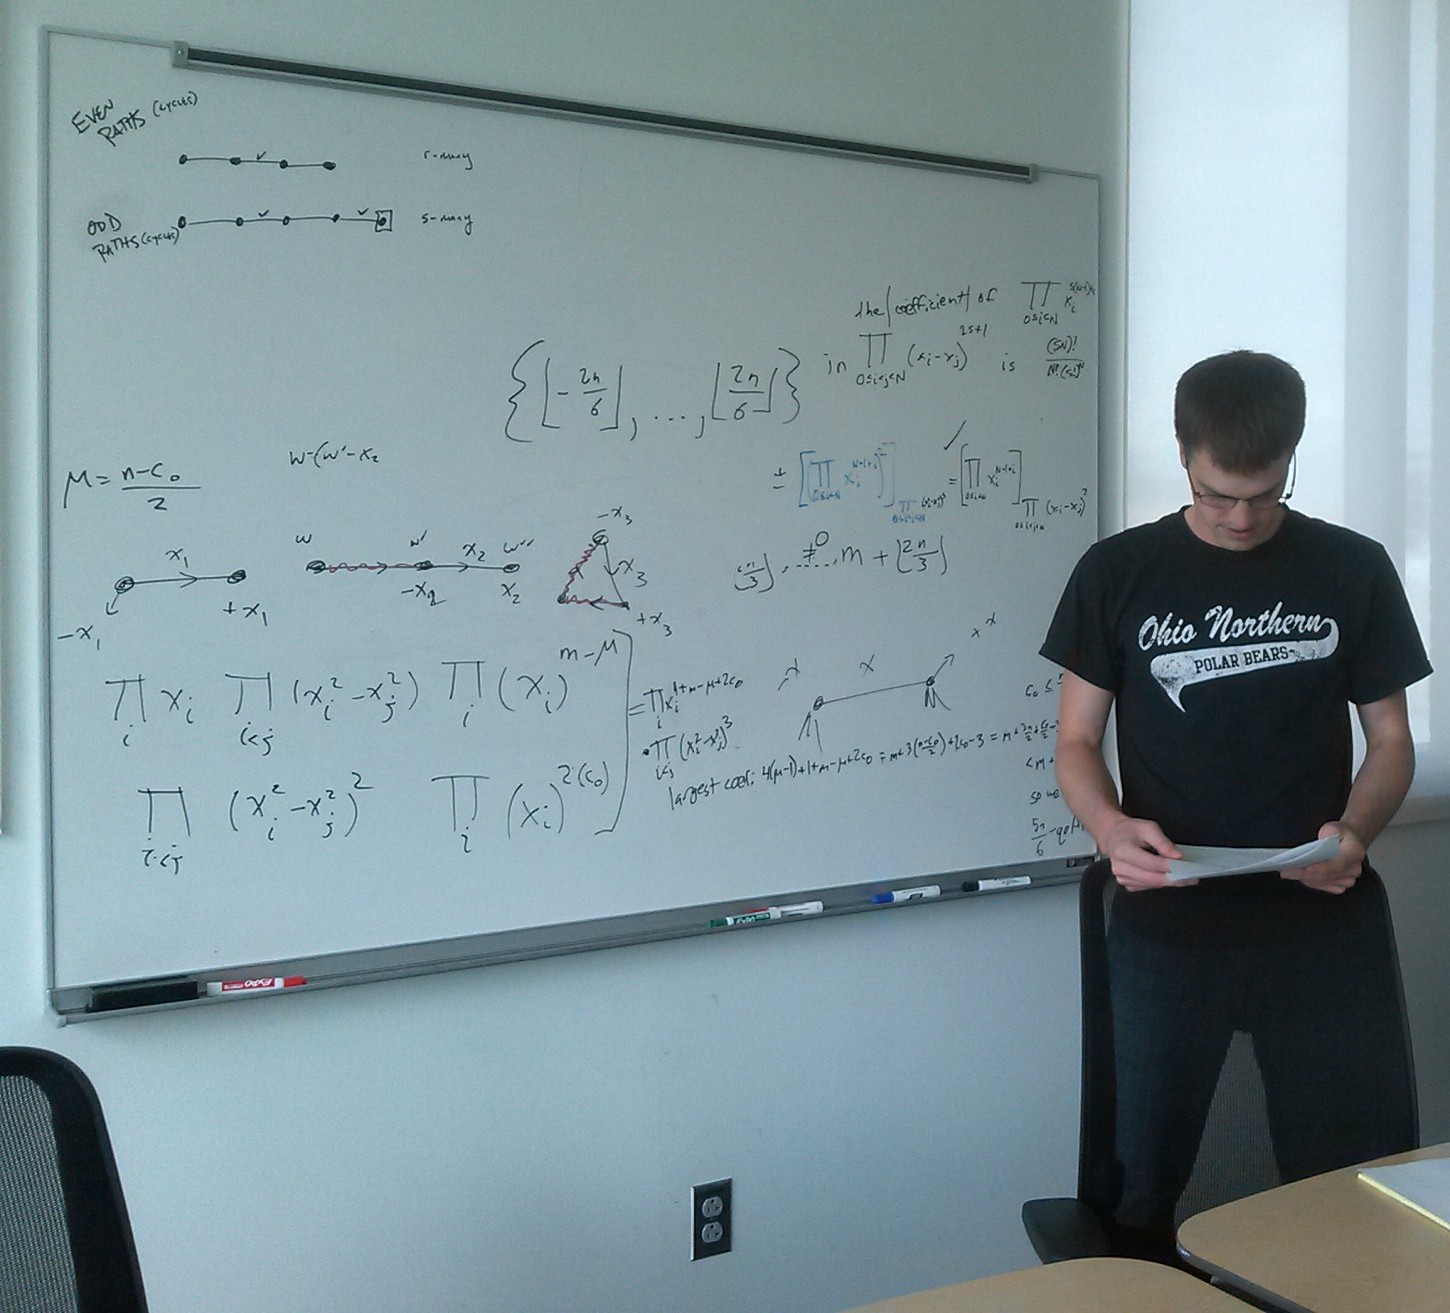 EVEN
PATHS (cycles)
r-many
ODD
PATHS (cycles)
s-many
the |coefficient| of ∏ 0≤i<N x_i^{s(N-1)}
in ∏ 0≤i<j<N (x_i-x_j)^{2s+1} is (sN)! / N!(s!)^N
{⌊-2n/6⌋, ..., ⌊2n/6⌋}
w-(w'-x_2
μ = (n-c_0)/2
± [[∏ 0≤i<N x_i^{N-1+i}]^2] = [∏ 0≤i<N x_i^{N-1+i}] ∏ 0≤i<j<N (x_i-x_j)^2
≠0
....., m + ⌊2n/3⌋
x_1
-x_1
+x_1
w
w'
x_2
w''
x_2
-x_3
x_3
+x_3
∏_i x_i ∏_{i<j} (x_i^2-x_j^2) ∏_i (x_i)^{m-μ}
∏_{i<j} (x_i^2-x_j^2)^2 ∏_i (x_i)^{2(c_0)}
= ∏_i x_i^{1+m-μ+2c_0}
• ∏_{i<j} (x_i^2-x_j^2)^3
x
x
largest coef: 4(μ-1)+1+m-μ+2c_0 = m+3((n-c_0)/2)+2c_0-3 = m+3n/2+c_0/2-3
c_0 ≤
<m+
so we
5n/6
Ohio Northern
POLAR BEARS
EXPO